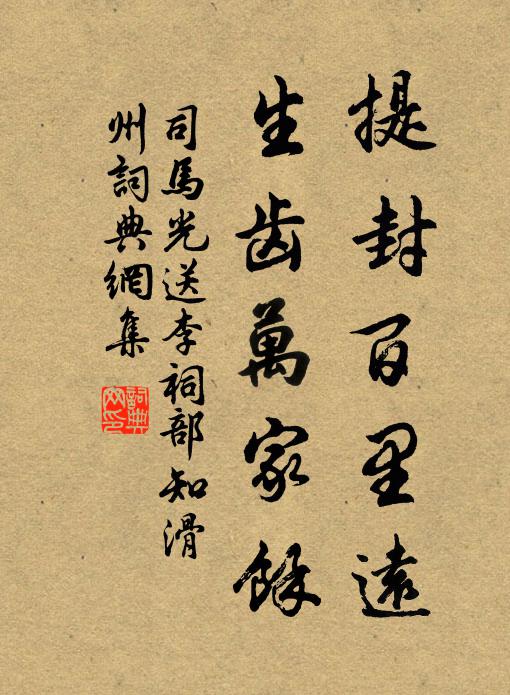 提封百里遠
生齿萬家餘
司馬光送李祠部知滑
州詞典網集
詞典
网印